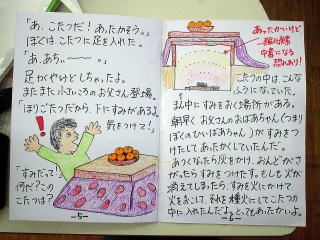 「あ、こたつだ！あったかそう。」
ぼくは、こたつに足を入れた。
「あ、あちぃ〜〜。」
足がやけどしちゃったよ。
またまた小さいころのお父さん登場。
「ほりごたつだから、下にすみがあるよ。
気をつけて！」
「すみだって！
何だ？この
こたつは？」
-5-
あったかいけど
一酸化炭素
中毒になる
恐れあり！
こたつの中は、こんな
ふうになっていた。
まん中にすみをおく場所がある。
朝早く お父さんのおばあちゃん（つまり
ぼくのひいおばあちゃん）が すみをつ
けてして あたたかくしていたんだ。
あつくなったら灰をかけ、おんどがさ
がったらすみをつけたす。もしも 火が
消えてしまったら、すみを火にかけて
火をおこして、それを種火にしてこたつの
中に入れたんだよ。とってもあったかいよ。
-6-